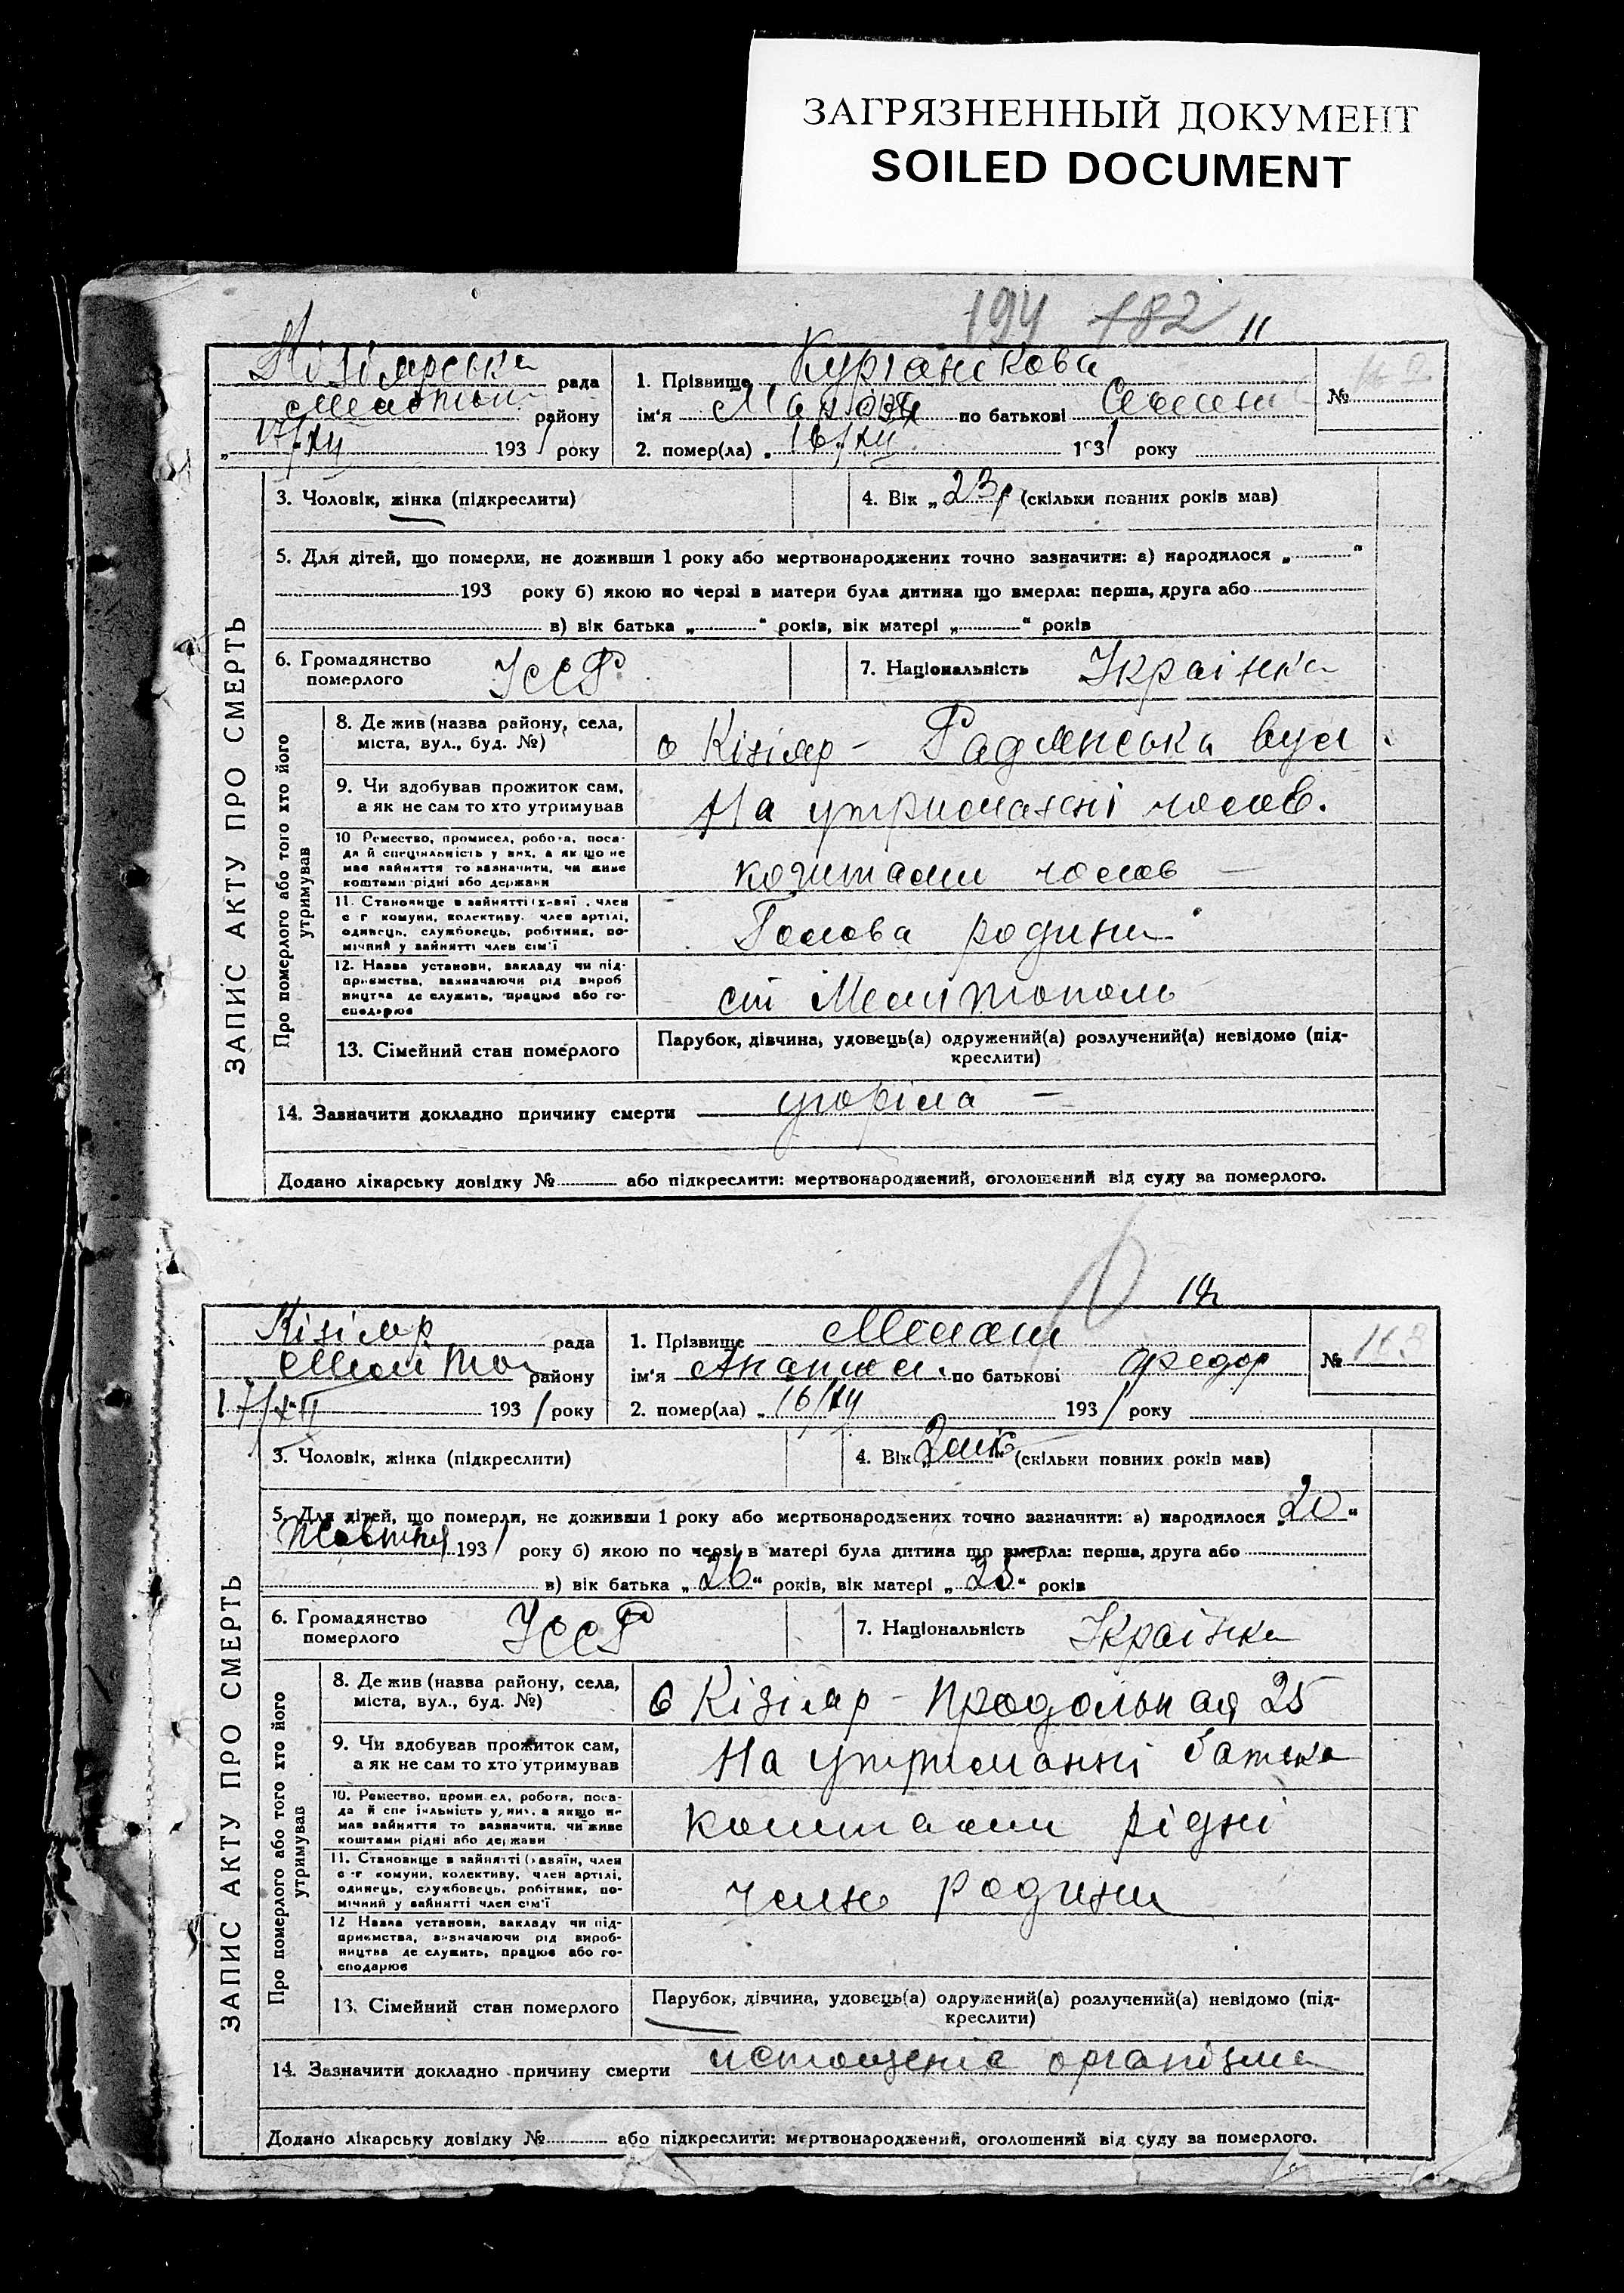 ЗАГРЯЗНЕННЫЙ ДОКУМЕНТ
SOILED DOCUMENT
194 182 11
Кізіярська рада
району
17/XII 1931 року
1. Прізвище Курганікова
ім'я Марія по батькові Семен
№
2. помер(ла) „ 16/XII 1931 року
ЗАПИС АКТУ ПРО СМЕРТЬ
3. Чоловік, жінка (підкреслити)
4. Вік „ 23 р (скільки повних років мав)
5. Для дітей, що померли, не доживши 1 року або мертвонароджених точно зазначити: а) народилося „ “
193 року б) якою по черзі в матери була дитина що вмерла: перша, друга або
в) вік батька „ “ років, вік матері „ “ років
6. Громадянство померлого УССР
7. Національність Українка
Про померлого або того хто його утримував
8. Де жив (назва району, села,
міста, вул., буд. №)
с Кізіяр - Радянська вул
9. Чи здобував прожиток сам,
а як не сам то хто утримував
На утриманні чолов.
10 Ремество, промисел, робота, поса-
да й спеціальність у них, а якщо не
має зайняття то зазначити, чи живе
коштами рідні або держави
коштами чолов —
11. Становище в зайнятті (х-вяї, член
с-г комуни, колективу, член артілі,
одинець, службовець, робітник, по-
мічний у зайнятті член сім'ї
Голова родини
12. Назва установи, закладу чи під-
приємства, зазначаючи рід вироб
ництва де служить, працює або го-
сподарює
ст Мелітополь
13. Сімейний стан померлого
Парубок, дівчина, удовець(а) одружений(а) розлучений(а) невідомо (під-
креслити)
14. Зазначити докладно причину смерти угоріла —
Додано лікарську довідку № або підкреслити: мертвонароджений, оголошений від суду за померлого.
Кізіяр рада
Мелітоп району
17/XII 1931 року
1. Прізвище
ім'я по батькові Федор
№ 163
2. помер(ла) „ 16/XII 1931 року
ЗАПИС АКТУ ПРО СМЕРТЬ
3. Чоловік, жінка (підкреслити)
4. Вік „ 2 міс “ (скільки повних років мав)
5. Для дітей, що померли, не доживши 1 року або мертвонароджених точно зазначити: а) народилося „20“
Жовтня 1931 року б) якою по черзі в матері була дитина що вмерла: перша, друга або
в) вік батька „26“ років, вік матері „25“ років
6. Громадянство померлого УССР
7. Національність Українка
Про померлого або того хто його утримував
8. Де жив (назва району, села,
міста, вул., буд. №)
с Кізіяр - Продольная 25
9. Чи здобував прожиток сам,
а як не сам то хто утримував
На утриманні батька
10. Ремество, промисел, робота, поса-
да й спеціальність у них, а якщо не
має зайняття то зазначити, чи живе
коштами рідні або держави
коштами рідні
11. Становище в зайнятті (хазяїн, член
с-г комуни, колективу, член артілі,
одинець, службовець, робітник, по-
мічний у зайнятті член сім'ї
член родини
12 Назва установи, закладу чи під-
приємства, зазначаючи рід вироб-
ництва де служить, працює або го-
сподарює
13. Сімейний стан померлого
Парубок, дівчина, удовець(а) одружений(а) розлучений(а) невідомо (під-
креслити)
14. Зазначити докладно причину смерти истощеніе організма
Додано лікарську довідку № або підкреслити: мертвонароджений, оголошений від суду за померлого.